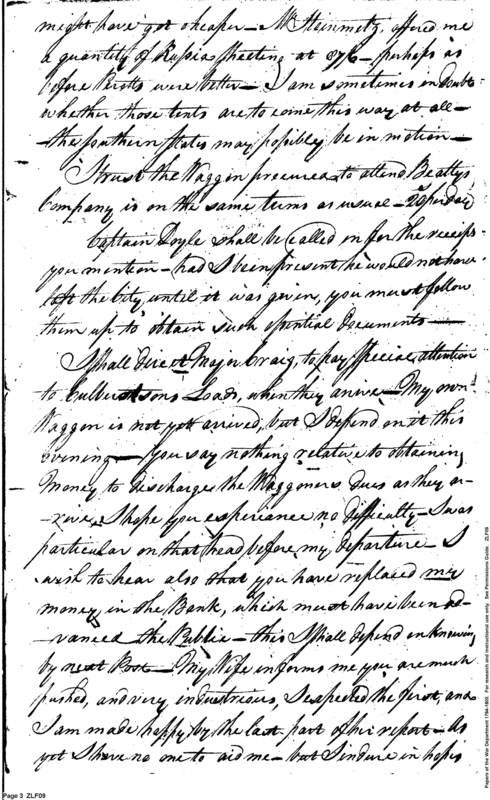 might have got cheaper — Mr Steinmetz, offered me
a quantity of Russia Sheeting at 87/6 — perhaps as
before Perots were better — I am sometimes in doubt
whether those tents are to come this way at all —
— the southern States may possibly be in motion —
I trust the Waggon procured to attend Beattys
Company is on the same terms as usual — per day
Captain Doyle shall be called on for the receipts
you mention — had I been present he would not have
left the City, until it was given, you must follow
them up to obtain such essential documents —
I shall direct Major Craig, to pay special attention
to Culbertsons Loads, when they arrive — My own
Waggon is not yet arrived, but I depend on it this
evening — you say nothing relative to obtaining
Money to discharge the Waggoners dues as they ar-
-rive, I hope you experiance no difficulty — I was
particular on that head before my departure — I
wish to hear also that you have replaced my
money in the Bank, which must have been ad-
-vanced the Public — this I shall depend on knowing
by next Post — My Wife informs me you are much
pushed, and very industrious, I expected the first, and
I am made happy by the last part of her report — As
yet I have no one to aid me — but I endure in hopes
Page 3 ZLF09
Papers of the War Department 1784-1800. For research and instructional use only. See Permissions Guide. ZLF09